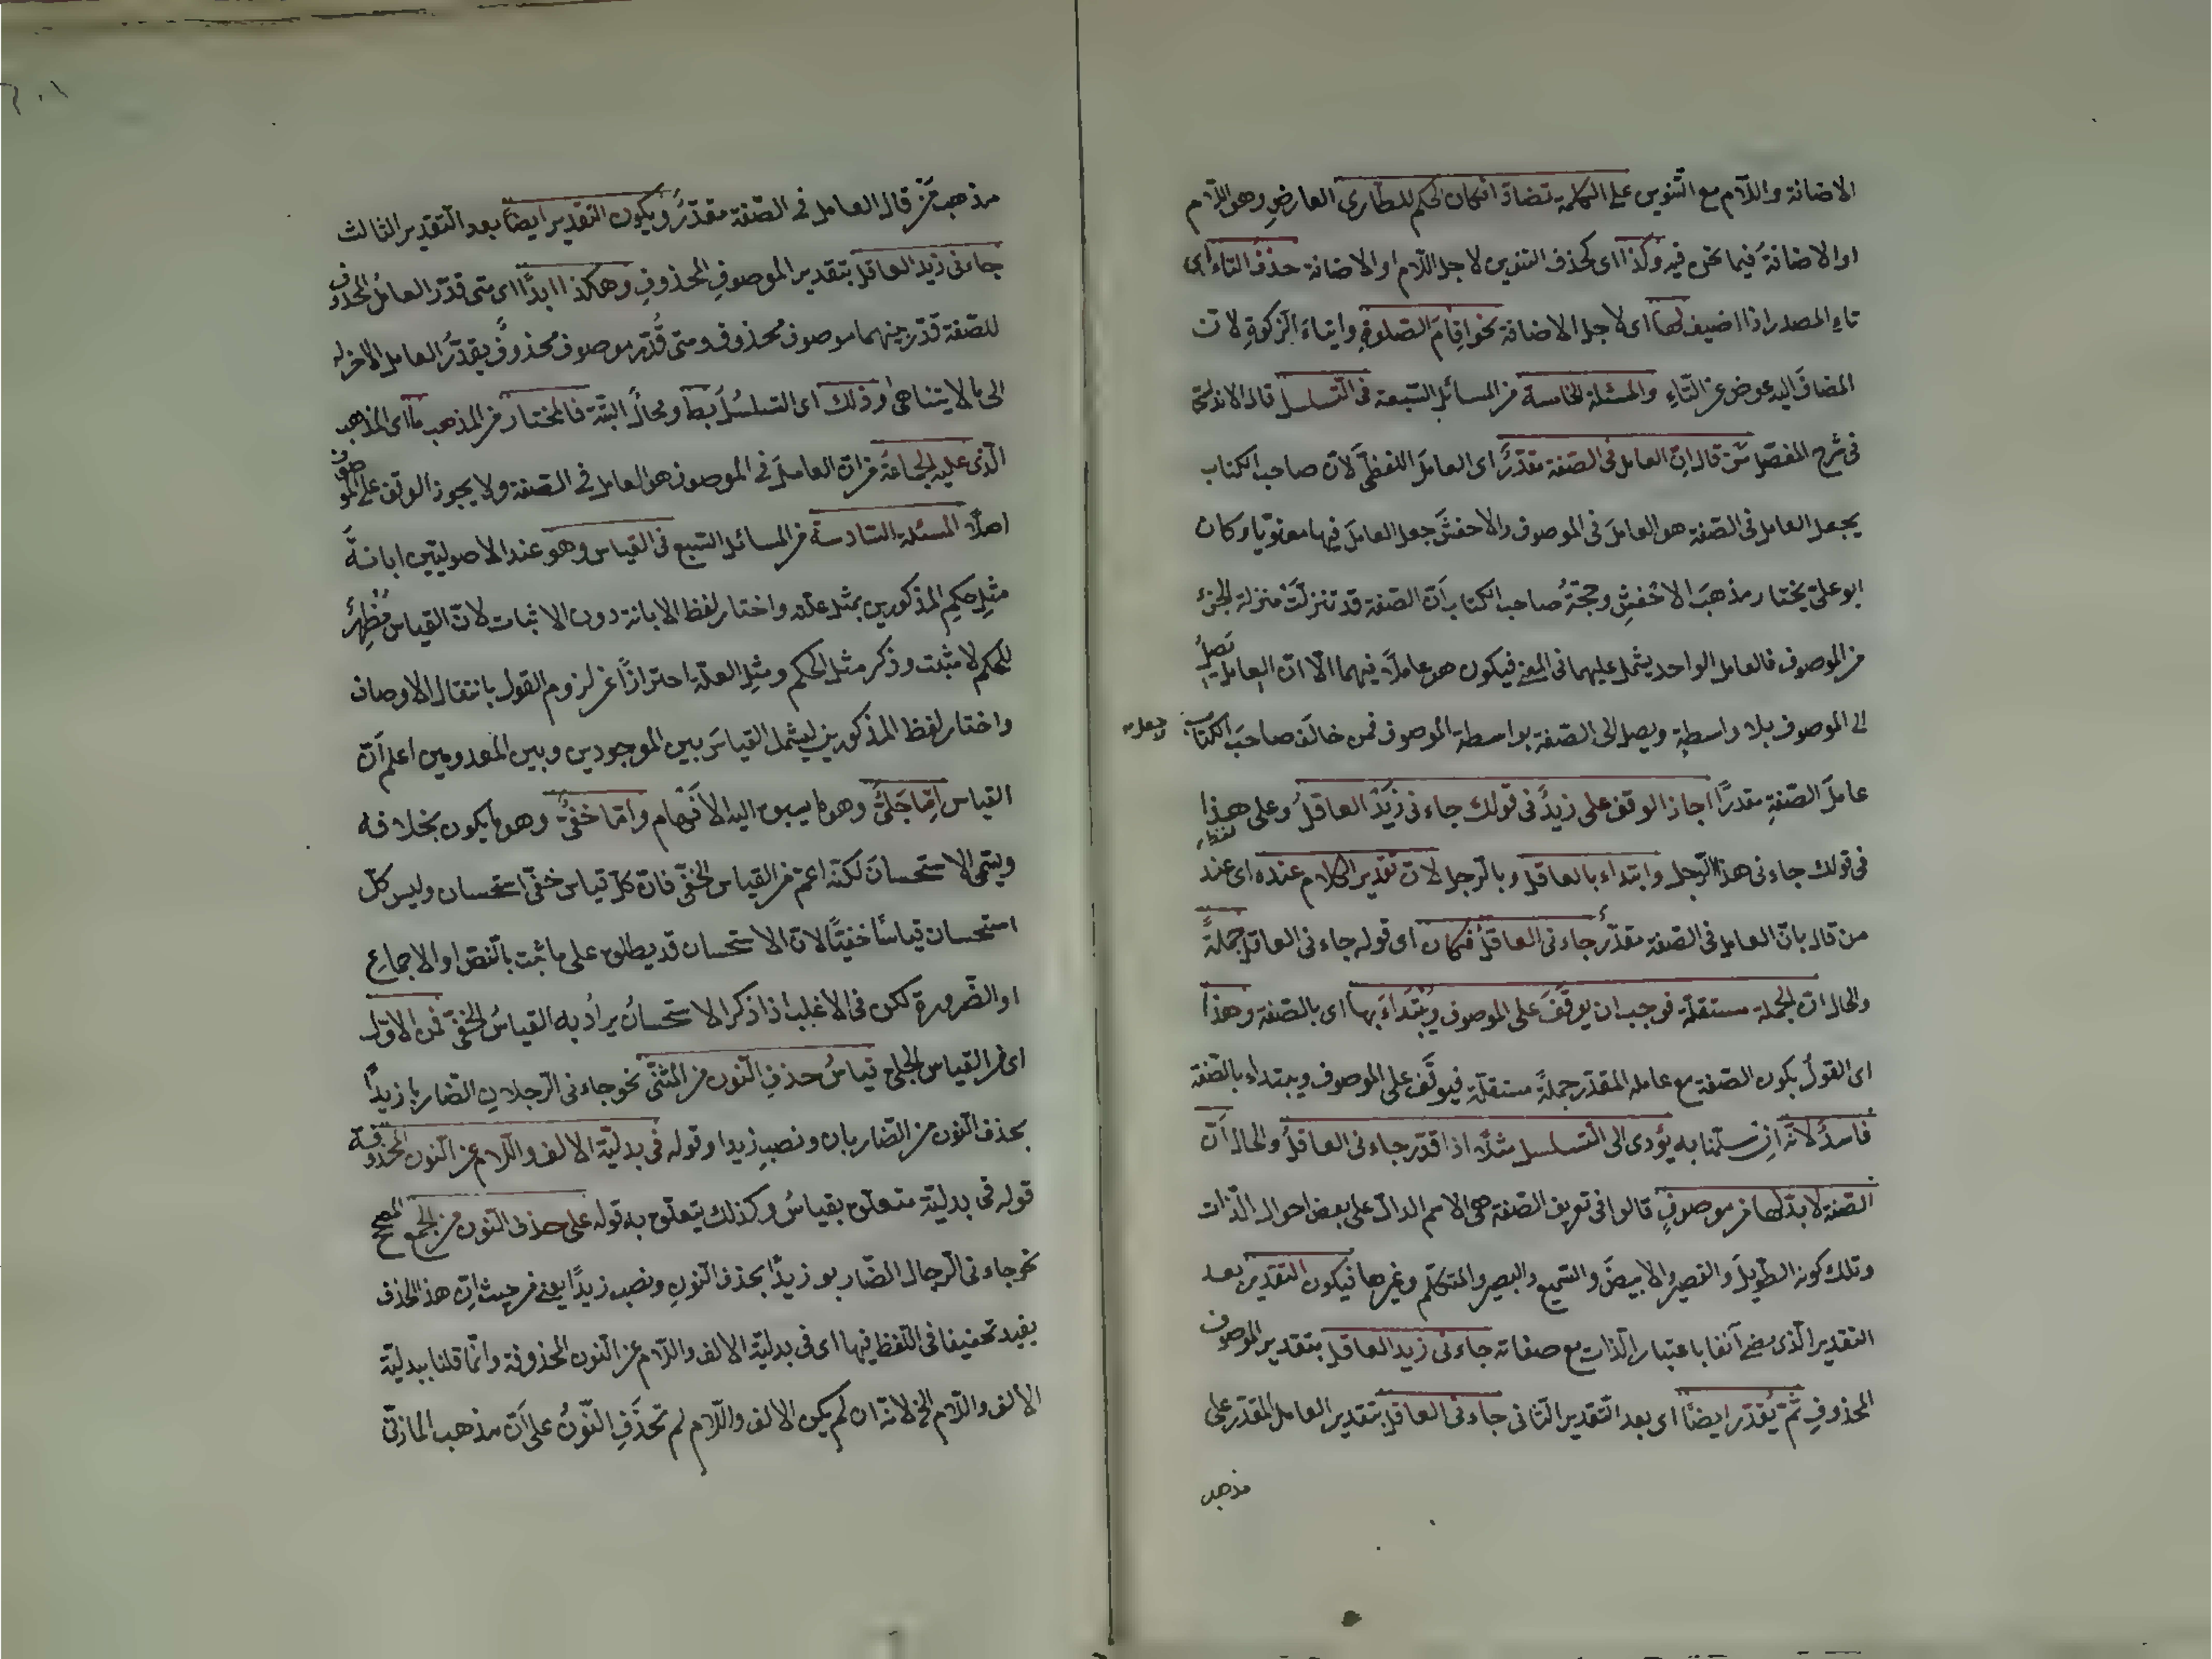 الاضافة واللام مع التنوين على الكلمة تضادّ افكان الحكم للطارى العارضِ وهو اللام
او الاضافةُ فيما نحن فيه وكذا اى كحذف التنوين لاجل اللام او الاضافة حذفُ التاء اى
تاءِ المصدر اذا اضيف لها اى لاجل الاضافة نحو اقامَ الصلوةِ وايتاءَ الزكوةِ لانّ
المضافَ اليه عوض عن التّاءِ والمسئلة الخامسة من المسائل السّبعة فى التّسلسل قال الاندلسىّ
فى شرح المفصّل مَن قال انّ العامل فى الصّفة مقدّرٌ اى العاملَ اللفظىَّ لانّ صاحب الكتاب
يجعل العامل فى الصّفة هو العاملَ فى الموصوف والاخفشَ جعل العاملَ فيها معنويّا وكان
ابو علىّ يختار مذهبَ الاخفشِ وحجّةُ صاحب الكتاب اَنّ الصّفة قد تنزلتْ منزلة الجزء
من الموصوف فالعامل الواحد يشمل عليهما فى المعنى فيكون هو عاملًا فيهما الّا انّ العامل يَصلُ
الى الموصوف بلا واسطةٍ ويصل الى الصّفة بواسطة الموصوف فمن خالَف صاحبَ الكتاب
عاملَ الصّفةِ مقدرًا اجاز الوقف على زيدٌ فى قولك جاءنى زَيْدٌ العاقلُ وعلى هذا
فى قولك جاءنى هذا الرّجل وابتداء بالعاقل وبالرّجل لانّ تقدير الكلام عنده اى عند
من قال بانّ العامل فى الصّفة مقدّرٌ جاءنى العاقلُ فكان اى قوله جاءنى العاقل جملةً
والحال انّ الجملة مستقلّة فوجب ان يوقَفَ على الموصوف ويُبْتَدَاءَ بها اى بالصّفة وهذا
اى القولُ بكون الصّفة مع عامله المقدّر جملةً مستقلّةِ فيوقَف على الموصوف ويبتداء بالصّفة
فاسدٌ لانّه اِن سلّمنا به يُؤدى الى التّسلسل مثلًا اذا قدّر جاءنى العاقلُ والحال اَنّ
الصّفة لا بدّ لها من موصوفٍ قالوا فى تعريف الصّفة هى الاسم الدالّ على بعض احوال الذّات
وتلك كونه الطّويلَ والقصير والابيضَ والسّميع والبصير والمتكلّم وغيرها فيكون التقدير بعد
التقدير الّذى مضى آنفا باعتبار الّذات مع صفاته جاءنى زيد العاقل بتقدير الموصوف
المحذوفِ ثمّ يُقدّر ايضًا اى بعد التّقدير الثّانى جاءنى العاقل بتقدير العامل المقدّر على
مذهب
مذهب مَنْ قال العامل فى الصّفة مقدّرٌ ويكون التقدير ايضًا بعد التّقدير الثالث
جاءنى زيد العاقل بتقدير الموصوفِ المحذوفِ وهكذا ابدًا اى متى قدّر العاملُ المحذوف
للصّفة قدّر بينهما موصوف محذوف ومتى قُدّر موصوف محذوفٌ يقدّرُ العامل الاخر له
الى ما لا يتناهى وذلك اى التسلسُلُ بط ومحالٌ البتّة فالمختار من المذهب ما اى المذهب
الّذى عليه الجماعة من انّ العاملَ فى الموصوف هو العامل فى الصّفة ولا يجوز الوقف على الموصوف
اصلًا المسئلة السّادسة من المسائل السّبع فى القياس وهو عند الاصوليّين ابانةُ
مثلِ حكمِ المذكورين بمثل علّته واختار لفظ الابانة دون الاثبات لانّ القياس مُظْهِرٌ
للحكم لا مثبت وذكر مثل الحكم ومثلِ العلّة احترازًا عن لزوم القول بانتقال الاوصاف
واختار لفظ المذكورين ليشمل القياسَ بين الموجودين وبين المعدومين اعلم اَنّ
القياس اِمّا جَلىٌّ وهو ما يسبق اليه الاَفْهام وامّا خفىٌّ وهو ما يكون بخلافه
ويسّمى الاستحسانَ لكنّه اعمّ من القياس الخفّى فانّ كلّ قياس خفّى استحسان وليس كلّ
استحسان قياسًا خفيًّا لانّ الاستحسان قد يطلق على ما ثبت بالنّص او الاجماعِ
او الضّرورة لكن فى الاغلب اذا ذكر الاستحسانُ يرادُ به القياسُ الخفىّ فمن الاوّل
اى من القياس الجلى قياسُ حذفِ النّون من المثنّى نحو جاءنى الرّجلان الضّاربا زيدًا
بحذف النّون من الضّاربان ونصبِ زيدا وقوله فى بدليّة الالف واللّام عن النّون المحذوفة
قوله فى بدليّة متعلّق بقياسُ وكذلك يتعلّق به قوله على حذف النّون من الجمع المصحح
نحو جاءنى الرّجال الضّاربو زيدًا بحذف النّونِ ونصب زيدًا يعنى من حيث انّ هذا الحذف
يفيد تخفيفا فى اللّفظ فيها اى فى بدليّة الالف واللّام عن النّون المحذوفة وانّما قلنا ببدليّة
الالف واللّام الخ لانّه ان لم يكن الالف واللّام لم تحذَفِ النّونُ على اَنّ مذهب المازنّى